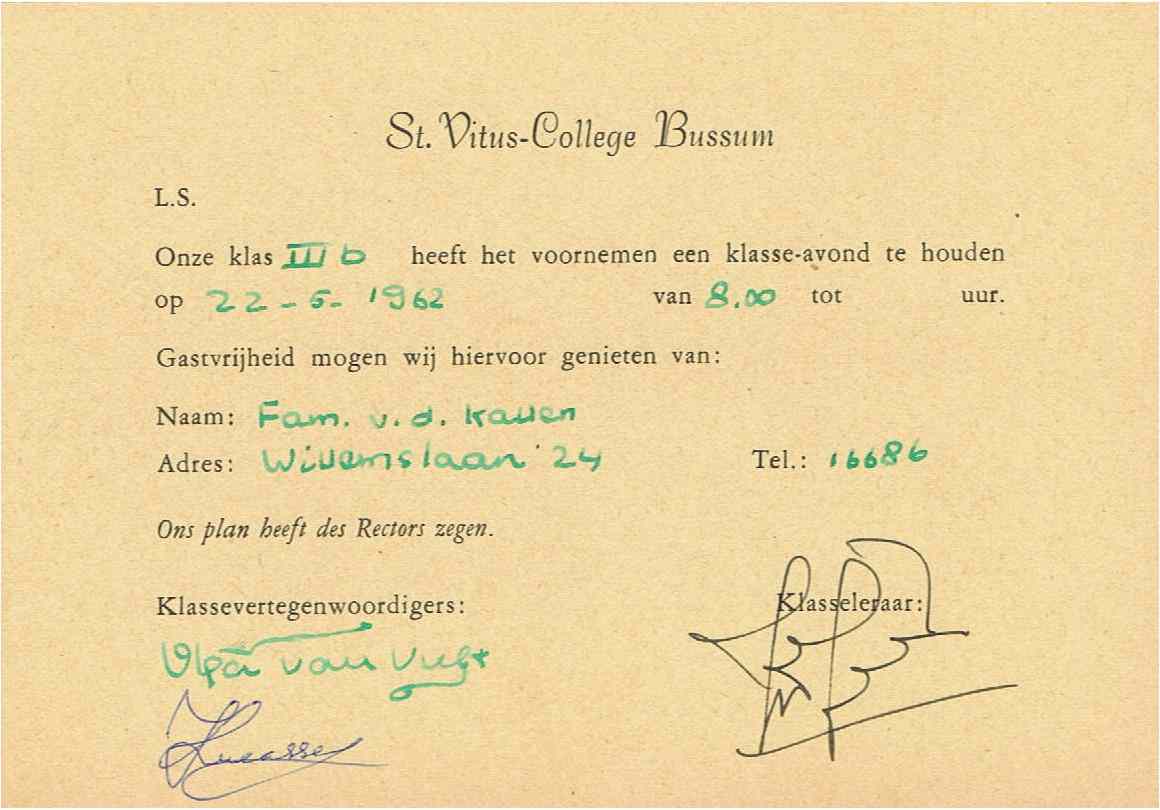 St. Vitus-College Bussum
L.S.
Onze klas III b heeft het voornemen een klasse-avond te houden
op 22-6-1962 van 8.00 tot uur.
Gastvrijheid mogen wij hiervoor genieten van:
Naam: Fam. v.d. Kallen
Adres: Willemslaan 24 Tel.: 16686
Ons plan heeft des Rectors zegen.
Klassevertegenwoordigers: Klasseleraar:
van